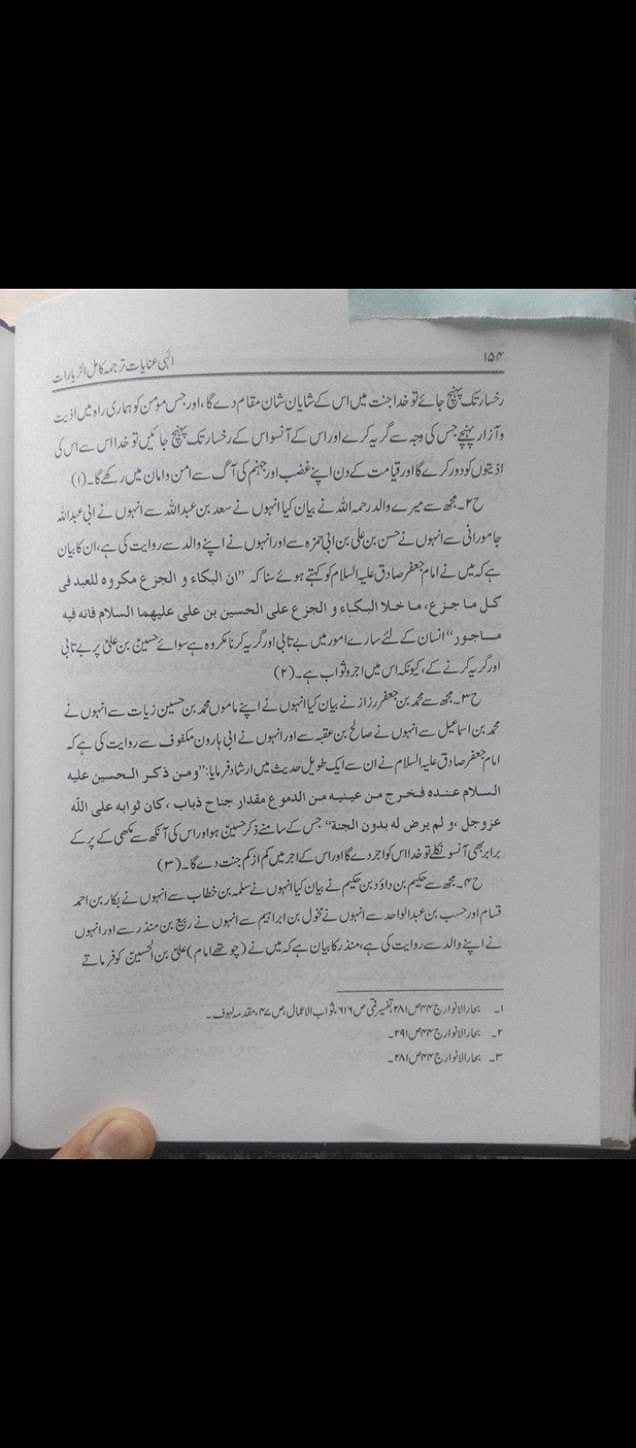 ۱۵۴
الٰہی عنایات ترجمہ کامل الزیارات
رخسار تک پہنچ جائے تو خدا جنت میں اس کے شایان شان مقام دے گا، اور جس مومن کو ہماری راہ میں اذیت
و آزار پہنچے جس کی وجہ سے گریہ کرے اور اس کے آنسو اس کے رخسار تک پہنچ جائیں تو خدا اس سے اس کی
اذیتوں کو دور کرے گا اور قیامت کے دن اپنے غضب اور جہنم کی آگ سے امن و امان میں رکھے گا۔(۱)
ح۲۔ مجھ سے میرے والد رحمہ اللہ نے بیان کیا انہوں نے سعد بن عبد اللہ سے انہوں نے ابی عبد اللہ
جامورانی سے انہوں نے حسن بن علی بن ابی حمزہ سے اور انہوں نے اپنے والد سے روایت کی ہے، ان کا بیان
ہے کہ میں نے امام جعفر صادق علیہ السلام کو کہتے ہوئے سنا کہ ”ان البکاء و الجزع مکروہ للعبد فی
کل ما جزع، ما خلا البکاء و الجزع علی الحسین بن علی علیهما السلام فانه فیه
ماجور“ انسان کے لئے سارے امور میں بے تابی اور گریہ کرنا مکروہ ہے سوائے حسینؑ بن علیؑ پر بے تابی
اور گریہ کرنے کے، کیونکہ اس میں اجر و ثواب ہے۔(۲)
ح۳۔ مجھ سے محمد بن جعفر رزاز نے بیان کیا انہوں نے اپنے ماموں محمد بن حسین زیات سے انہوں نے
محمد بن اسماعیل سے انہوں نے صالح بن عقبہ سے اور انہوں نے ابی ہارون مکفوف سے روایت کی ہے کہ
امام جعفر صادق علیہ السلام نے ان سے ایک طویل حدیث میں ارشاد فرمایا: ”ومن ذکر الحسین علیه
السلام عنده فخرج من عینیه من الدموع مقدار جناح ذباب، کان ثوابه علی اللّه
عزوجل، و لم یرض له بدون الجنة“ جس کے سامنے ذکر حسینؑ ہو اور اس کی آنکھ سے مکھی کے پر کے
برابر بھی آنسو نکلے تو خدا اس کو اجر دے گا اور اس کے اجر میں کم از کم جنت دے گا۔(۳)
ح۴۔ مجھ سے حکیم بن داؤد بن حکیم نے بیان کیا انہوں نے سلمہ بن خطاب سے انہوں نے بکار بن احمد
قسام اور حسب بن عبد الواحد سے انہوں نے مخول بن ابراہیم سے انہوں نے ربیع بن منذر سے اور انہوں
نے اپنے والد سے روایت کی ہے، منذر کا بیان ہے کہ میں نے (چوتھے امام) علیؑ بن الحسینؑ کو فرماتے
۱۔ بحار الانوار ج ۴۴ ص ۲۸۱، تفسیر قمی ص ۶۱۶، ثواب الاعمال، ص ۴۷، مقدمہ لہوف۔
۲۔ بحار الانوار ج ۴۴ ص ۲۹۱۔
۳۔ بحار الانوار ج ۴۴ ص ۲۸۱۔